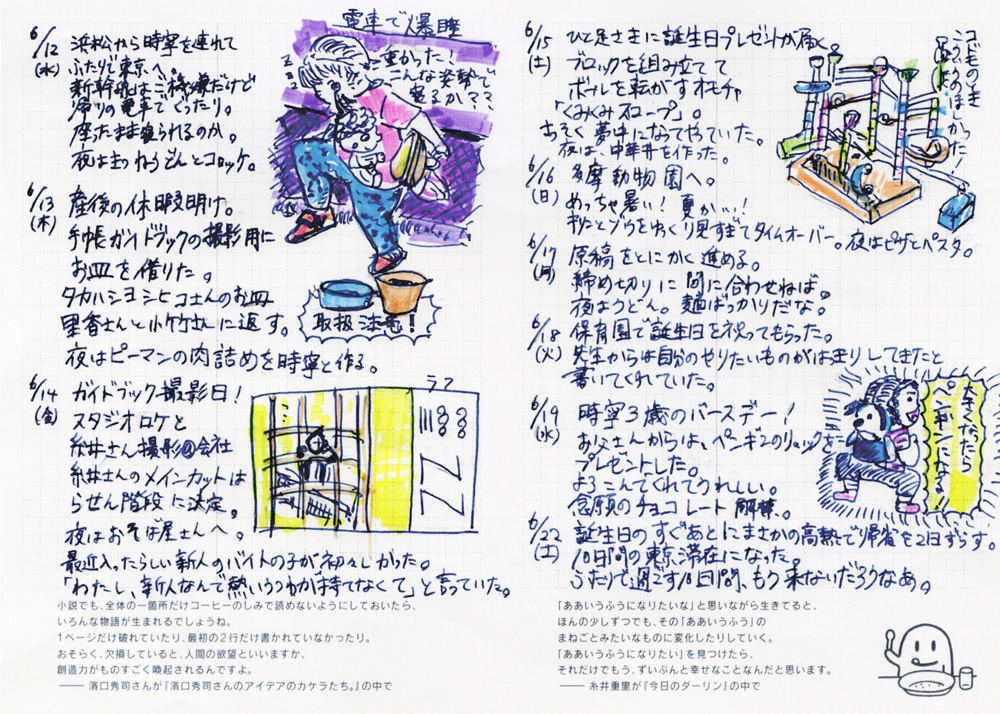 電車で爆睡
6/12
(水)
浜松から時寧を連れて
ふたりで東京へ。
新幹線はご機嫌だけど
帰りの電車でぐったり。
座ったまま寝られるのか。
夜はまつわうどんとコロッケ。
重かった!
こんな姿勢で
寝るか、ママ
6/13
(木)
産後の休暇明け。
手帳ガイドブックの撮影用に
お皿を借りた。
タカハシヨシヒコさんのお皿
里香さんと小竹さんに返す。
夜はピーマンの肉詰めを時寧と作る。
取扱注意!
6/14
(金)
ガイドブック撮影日!
スタジオロケと
糸井さん撮影@会社
糸井さんのメインカットは
らせん階段に決定。
夜はおそば屋さんへ。
最近入ったらしい新人のバイトの子が初々しかった。
「わたし、新人なんで熱いうつわが持てなくて」と言っていた。
ラフ
小説でも、全体の一箇所だけコーヒーのしみで読めないようにしておいたら、
いろんな物語が生まれるでしょうね。
1ページだけ破れていたり、最初の2行だけ書かれていなかったり。
おそらく、欠損していると、人間の欲望といいますか、
創造力がものすごく喚起されるんですよ。
—— 濱口秀司さんが『濱口秀司さんのアイデアのカケラたち。』の中で
6/15
(土)
ひと足さきに誕生日プレゼントが届く
ブロックを組み立てて
ボールを転がすオモチャ
「くみくみスロープ」。
あそく夢中になってやっていた。
夜は、中華丼を作った。
コドモのとき
こういうのほしかった!
6/16
(日)
多摩動物園へ。
めっちゃ暑い!夏かい!
キリンとゾウをゆっくり見すぎてタイムオーバー。夜はピザとパスタ。
6/17
(月)
原稿をとにかく進める。
締め切りに間に合わせねば。
夜はうどん。麺ばっかりだな。
6/18
(火)
保育園で誕生日を祝ってもらった。
先生からは自分のやりたいものがはっきりしてきたと
書いてくれていた。
6/19
(水)
時寧3歳のバースデー!
お父さんからは、ペンギンのリュックを
プレゼントした。
よろこんでくれてうれしい。
念願のチョコレート解禁。
大きくなったら
ペンギンになる!!
6/22
(土)
誕生日のすぐあとにまさかの高熱で帰省を2日ずらす。
10日間の東京滞在になった。
ふたりで過ごす10日間、もう来ないだろうなあ。
「ああいうふうになりたいな」と思いながら生きてると、
ほんの少しずつでも、その「ああいうふう」の
まねごとみたいなものに変化したりしていく。
「ああいうふうになりたい」を見つけたら、
それだけでもう、ずいぶんと幸せなことなんだと思います。
—— 糸井重里が『今日のダーリン』の中で